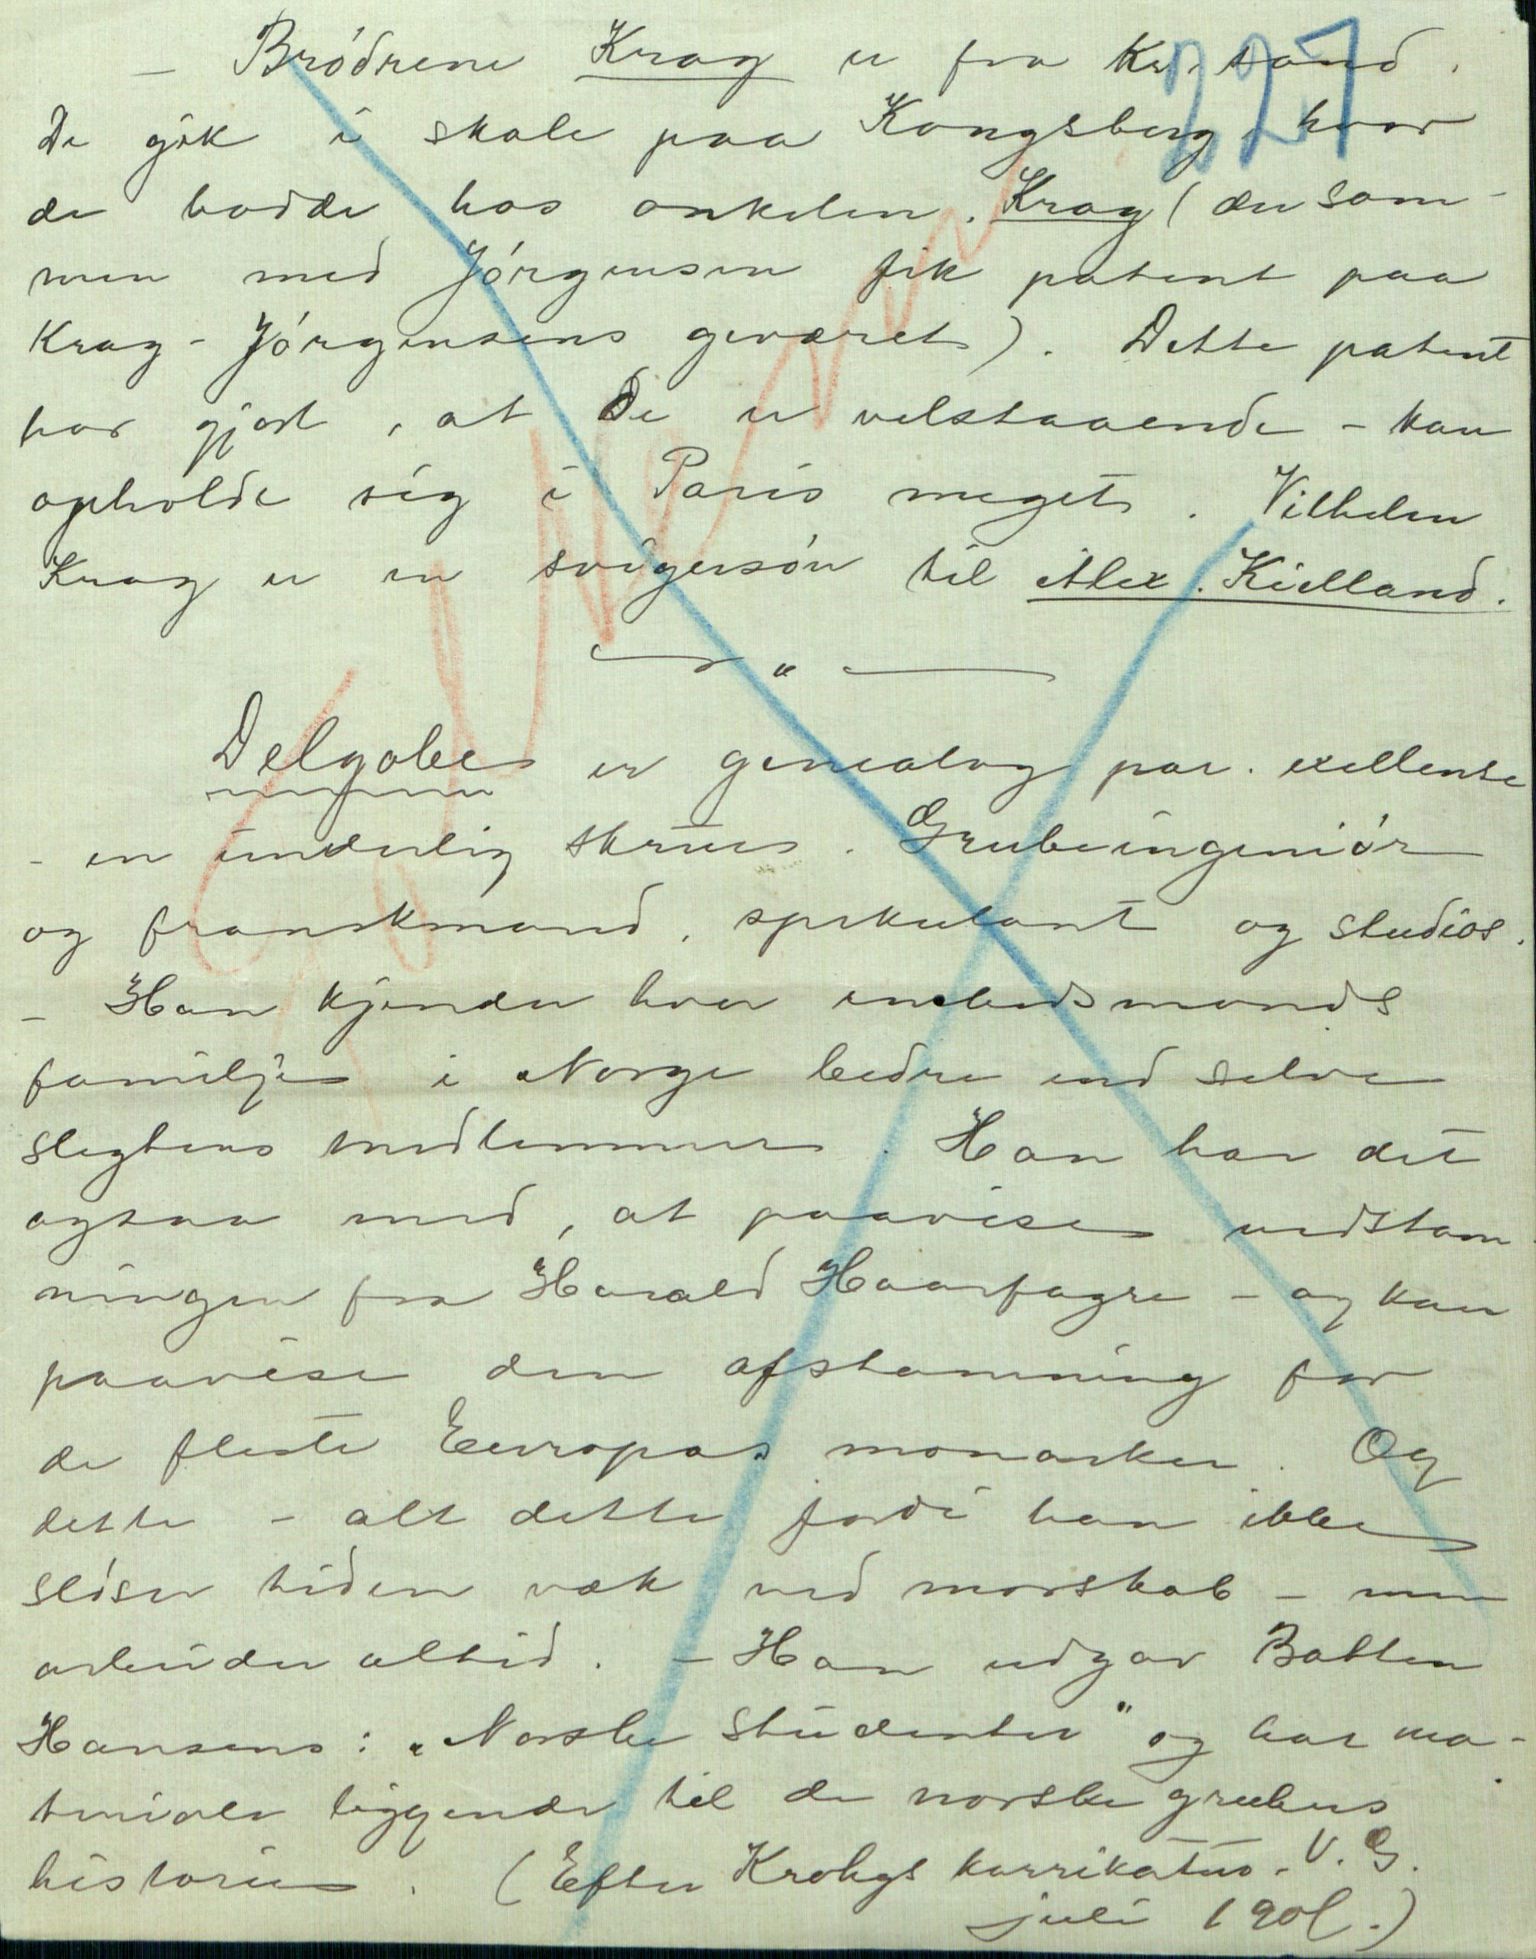 227
— Brødrene Krag er fra Kr.sand.
De gik i skole paa Kongsberg, hvor
de bodde hos onkelen. Krag (der sam-
men med Jørgensen fik patent paa
Krag-Jørgensens geværet). Dette patent
har gjort, at De er velstaaende – kan
opholde sig i Paris meget. Vilhelm
Krag er en svigersøn til Alex. Kielland.
— " —
Delgobe er genealog par. exellense
– en underlig skrue. Grubeingeniør
og franskmand, spekulant og studios.
– Han kjender hver embedsmands
familje i Norge bedre end selve
slegtens medlemmer. Han har det
ogsaa med, at paavise nedstam-
ningen fra Harald Haarfagre – og kan
paavise den afstamning for
de fleste Europas monarker. Og
dette – alt dette fordi han ikke
sløser tiden væk ved morskab – men
arbeider altid. – Han udgav Botten
Hansens: „Norske studenter" og har ma-
teriale liggende til de norske grubers
historie. (Efter Krohgs karrikatur. V. G.
juli 190